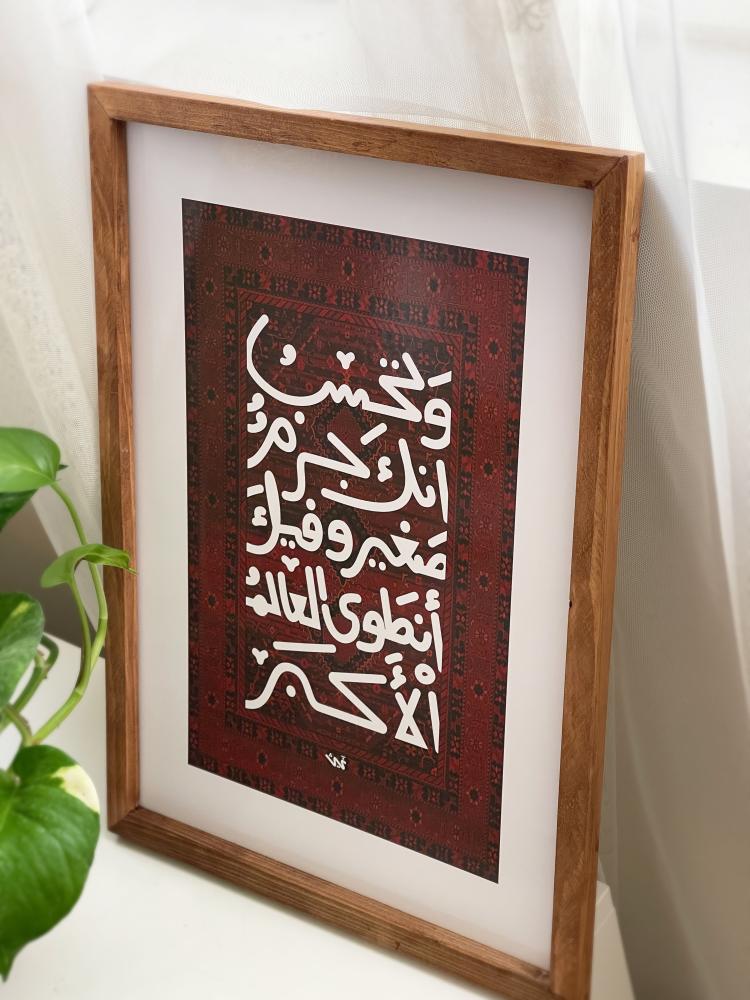 وَتَحْسَبُ
انك جرمٌ
صَغير وفيكَ
أنطَوى العالمُ
الْأَكبر